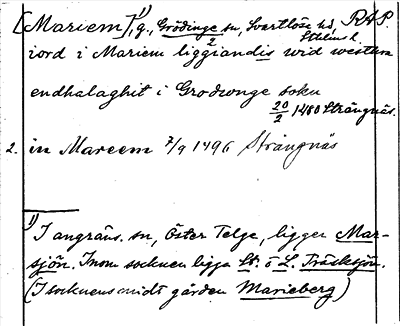 [Mariem]¹⁾, g., Grödinge sn, Svartlösa hd, RAP.
Sthlms l.
iord i Mariem liggiandis wid westan
endhalaghit i Grodwnge sokn
20/2 1480 Strängnäs.
2. in Mareem 7/9 1496 Strängnäs
1) I angräns. sn, Öster Telge, ligger Mar-
sjön. Inom socknen ligga St. o L. Träsksjön.
(I socknens midt gården Marieberg)